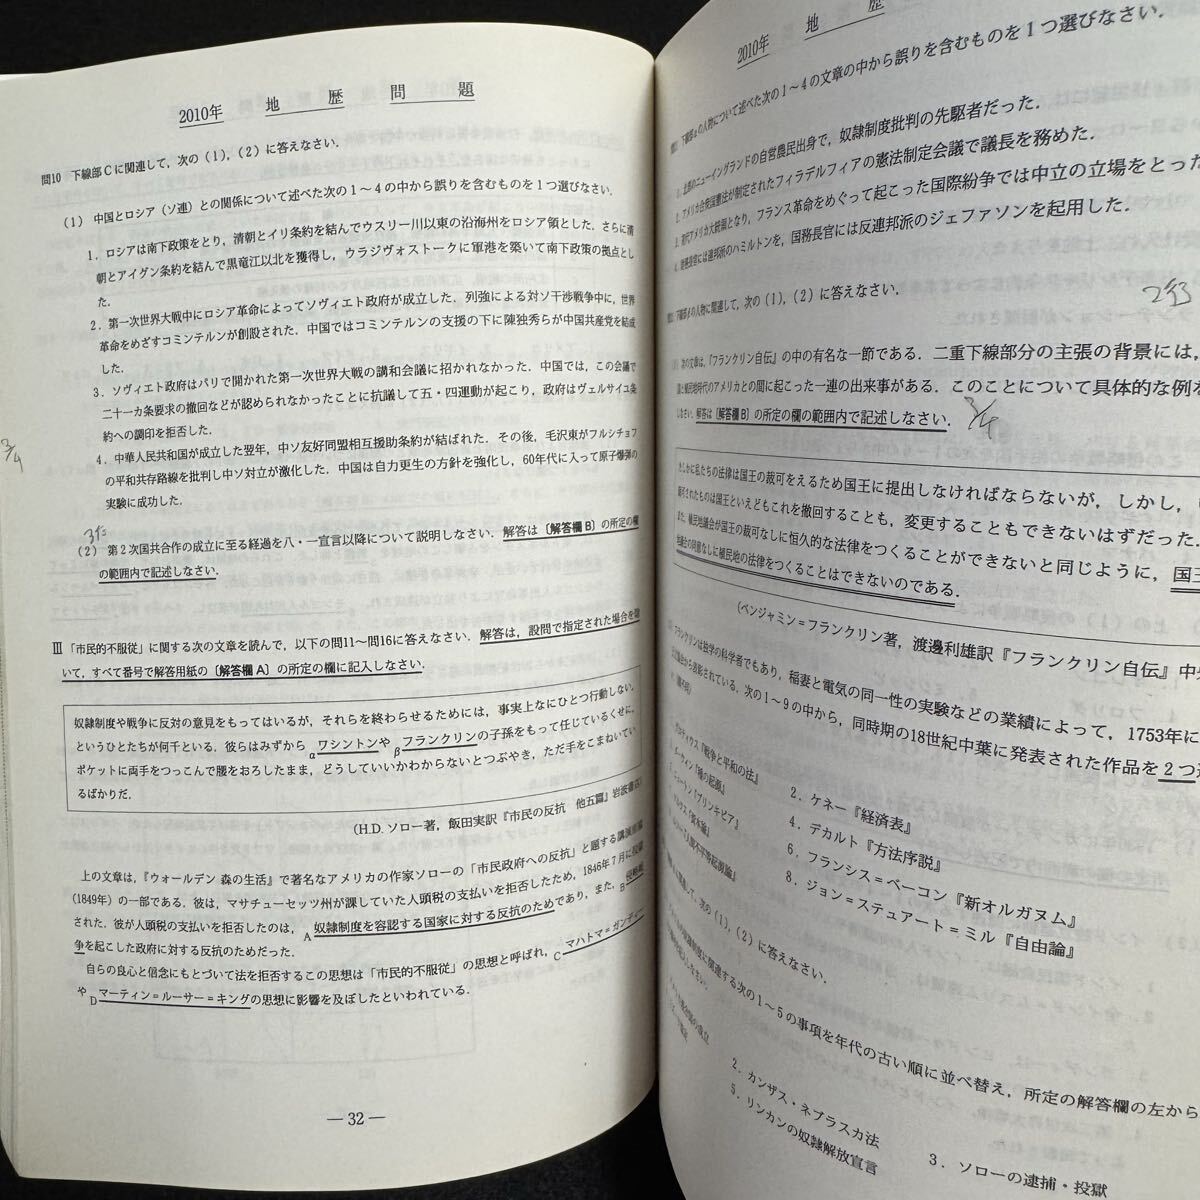 2010年 地 歴 問 題
問10 下線部Cに関連して，次の（1），（2）に答えなさい．
（1） 中国とロシア（ソ連）との関係について述べた次の1～4の中から誤りを含むものを1つ選びなさい．
1．ロシアは南下政策をとり，清朝とイリ条約を結んでウスリー川以東の沿海州をロシア領とした．さらに清
朝とアイグン条約を結んで黒竜江以北を獲得し，ウラジヴォストークに軍港を築いて南下政策の拠点とし
た．
2．第一次世界大戦中にロシア革命によってソヴィエト政府が成立した．列強による対ソ干渉戦争中に，世界
革命をめざすコミンテルンが創設された．中国ではコミンテルンの支援の下に陳独秀らが中国共産党を結成
した．
3．ソヴィエト政府はパリで開かれた第一次世界大戦の講和会議に招かれなかった．中国では，この会議で
二十一カ条要求の撤回などが認められなかったことに抗議して五・四運動が起こり，政府はヴェルサイユ条
約への調印を拒否した．
4．中華人民共和国が成立した翌年，中ソ友好同盟相互援助条約が結ばれた．その後，毛沢東がフルシチョフ
の平和共存路線を批判し中ソ対立が激化した．中国は自力更生の方針を強化し，60年代に入って原子爆弾の
実験に成功した．
3/4
3行
（2） 第2次国共合作の成立に至る経過を八・一宣言以降について説明しなさい．解答は〔解答欄B〕の所定の欄
の範囲内で記述しなさい．
Ⅲ 「市民的不服従」に関する次の文章を読んで，以下の問11～問16に答えなさい．解答は，設問で指定された場合を除
いて，すべて番号で解答用紙の〔解答欄A〕の所定の欄に記入しなさい．
奴隷制度や戦争に反対の意見をもってはいるが，それらを終わらせるためには，事実上なにひとつ行動しない，
というひとたちが何千といる．彼らはみずから αワシントンや βフランクリンの子孫をもって任じているくせに，
ポケットに両手をつっこんで腰をおろしたまま，どうしていいかわからないとつぶやき，ただ手をこまねいてい
るばかりだ．
（H.D. ソロー著，飯田実訳『市民の反抗 他五篇』岩波書店）
上の文章は，『ウォールデン 森の生活』で著名なアメリカの作家ソローの「市民政府への反抗」と題する講演原稿
（1849年）の一部である．彼は，マサチューセッツ州が課していた人頭税の支払いを拒否したため，1846年7月に投獄
された．彼が人頭税の支払いを拒否したのは，A奴隷制度を容認する国家に対する反抗のためであり，また，B侵略戦
争を起こした政府に対する反抗のためだった．
自らの良心と信念にもとづいて法を拒否するこの思想は「市民的不服従」の思想と呼ばれ，Cマハトマ＝ガンディー
やDマーティン＝ルーサー＝キングの思想に影響を及ぼしたといわれている．
― 32 ―
2010年 地 歴
下線部αの人物について述べた次の1～4の文章の中から誤りを含むものを1つ選びなさい．
1．北部のニューイングランドの自営農民出身で，奴隷制度批判の先駆者だった．
2．アメリカ合衆国憲法が制定されたフィラデルフィアの憲法制定会議で議長を務めた．
3．初代アメリカ大統領となり，フランス革命をめぐって起こった国際紛争では中立の立場をとった
4．財務長官には連邦派のハミルトンを，国務長官には反連邦派のジェファソンを起用した．
下線部βの人物に関連して，次の（1），（2）に答えなさい．
2行
次の文章は，『フランクリン自伝』の中の有名な一節である．二重下線部分の主張の背景には，
国と植民地時代のアメリカとの間に起こった一連の出来事がある．このことについて具体的な例を
なさい．解答は〔解答欄B〕の所定の欄の範囲内で記述しなさい．
3/4
たしかに私たちの法律は国王の裁可をえるため国王に提出しなければならないが，しかし，
裁可されたものは国王といえどもこれを撤回することも，変更することもできないはずだった．
また，植民地議会が国王の裁可なしに恒久的な法律をつくることができないと同じように，国王
の同意なしに植民地の法律をつくることはできないのである．
（ベンジャミン＝フランクリン著，渡邊利雄訳『フランクリン自伝』中央
フランクリンは独学の科学者でもあり，稲妻と電気の同一性の実験などの業績によって，1753年に
表彰されている．次の1～9の中から，同時期の18世紀中葉に発表された作品を2つ選
『戦争と平和の法』
2．ケネー『経済表』
『種の起源』
4．デカルト『方法序説』
『プリンキピア』
6．フランシス＝ベーコン『新オルガヌム』
『資本論』
8．ジョン＝ステュアート＝ミル『自由論』
『人間不平等起源論』
に関連して，次の（1），（2）に答えなさい．
に関連する次の1～5の事項を年代の古い順に並べ替え，所定の解答欄の左から
2．カンザス・ネブラスカ法
3．ソローの逮捕・投獄
5．リンカンの奴隷解放宣言